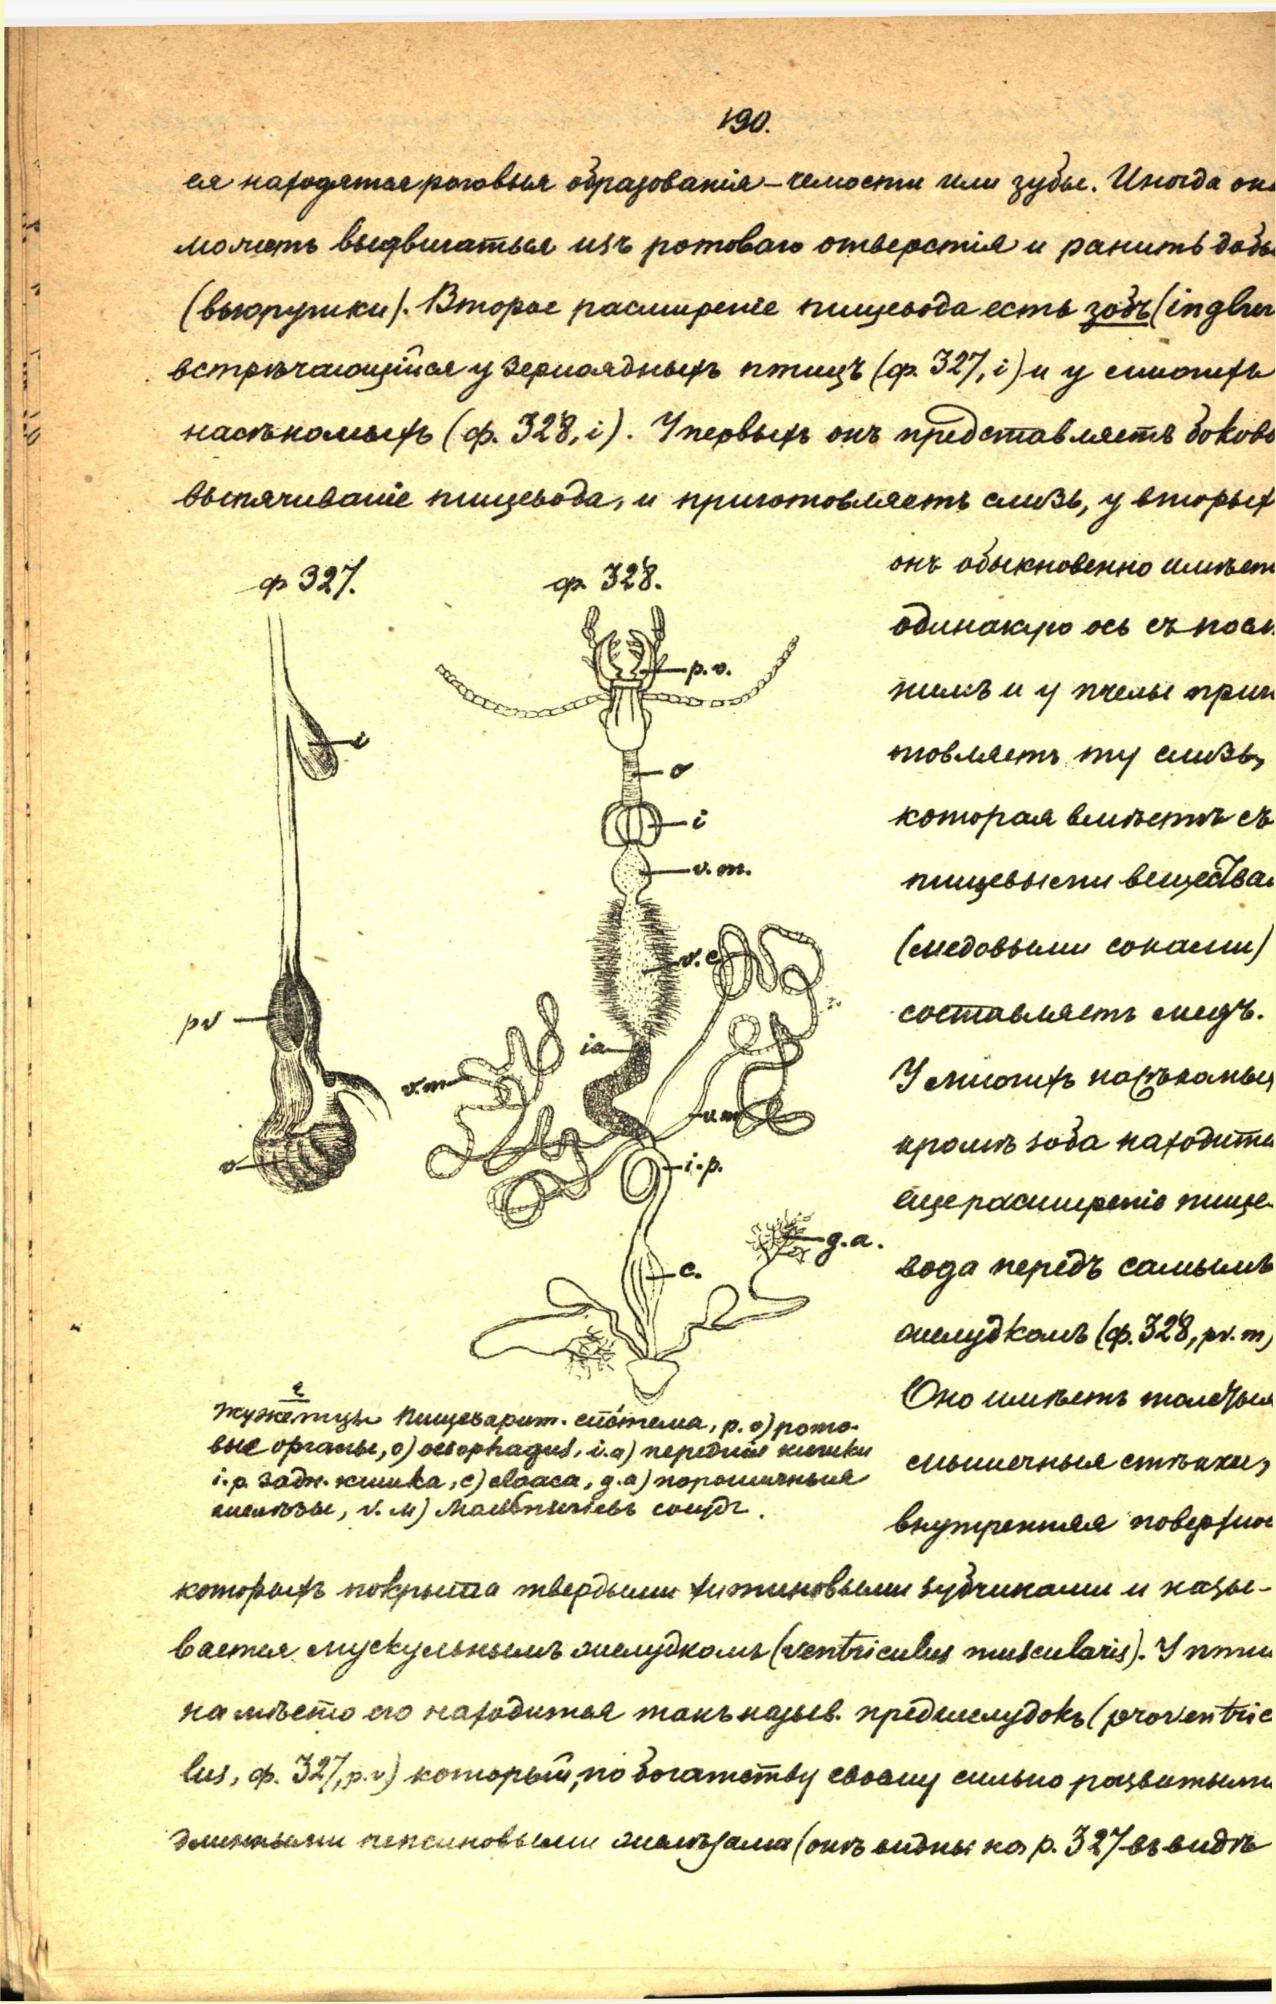 190.
ся находятся роговыя образованiя – челюсти или зубы. Иногда она
можетъ выдвигаться изъ ротоваго отверстiя и ранить добы
(вьюрушки). Второе расширенiе пищевода есть зобъ (inglu
встрѣчающiйся у зерноядныхъ птицъ (ф. 327, i) и у многихъ
насѣкомыхъ (ф. 328, i). У первыхъ онъ представляетъ боково
выпячиванiе пищевода, и приготовляетъ слизь, у вторых
онъ обыкновенно имѣет
одинакую ось съ послѣ
нимъ и у пчелы приг
товляетъ ту слизь,
которая вмѣстѣ съ
пищевыми вещества
(медовыми соками)
составляетъ медъ.
У многихъ насѣкомых
кромѣ зоба находитс
еще расширенiе пище-
вода передъ самымъ
желудкомъ (ф. 328, pv. m)
Оно имѣетъ толстыя
мышечныя стѣнки,
внутренняя поверхнос
ф 327.
i
pv
v
ф. 328.
p. o.
o
i
v. m.
v. c
ia
v. m
v. m
i. p.
g. a.
c.
Жужелицы пищеварит. система, p. o) рото-
вые органы, o) oesophagus, i. a) переднiя кишки
i. p. задн. кишка, c) cloaca, g. a) порошичныя
железы, v. м) Мальпигiевъ сосудъ.
которыхъ покрыта твердыми хитиновыми зубчиками и назы-
вается мускульнымъ желудкомъ (ventriculus muscularis). У пти
на мѣсто его находится такъ назыв. преджелудокъ (proventric
lus, ф. 327, p. v) который, по богатству своему сильно развитыми
длинными пепсиновыми железами (онѣ видны на р. 327 въ видѣ